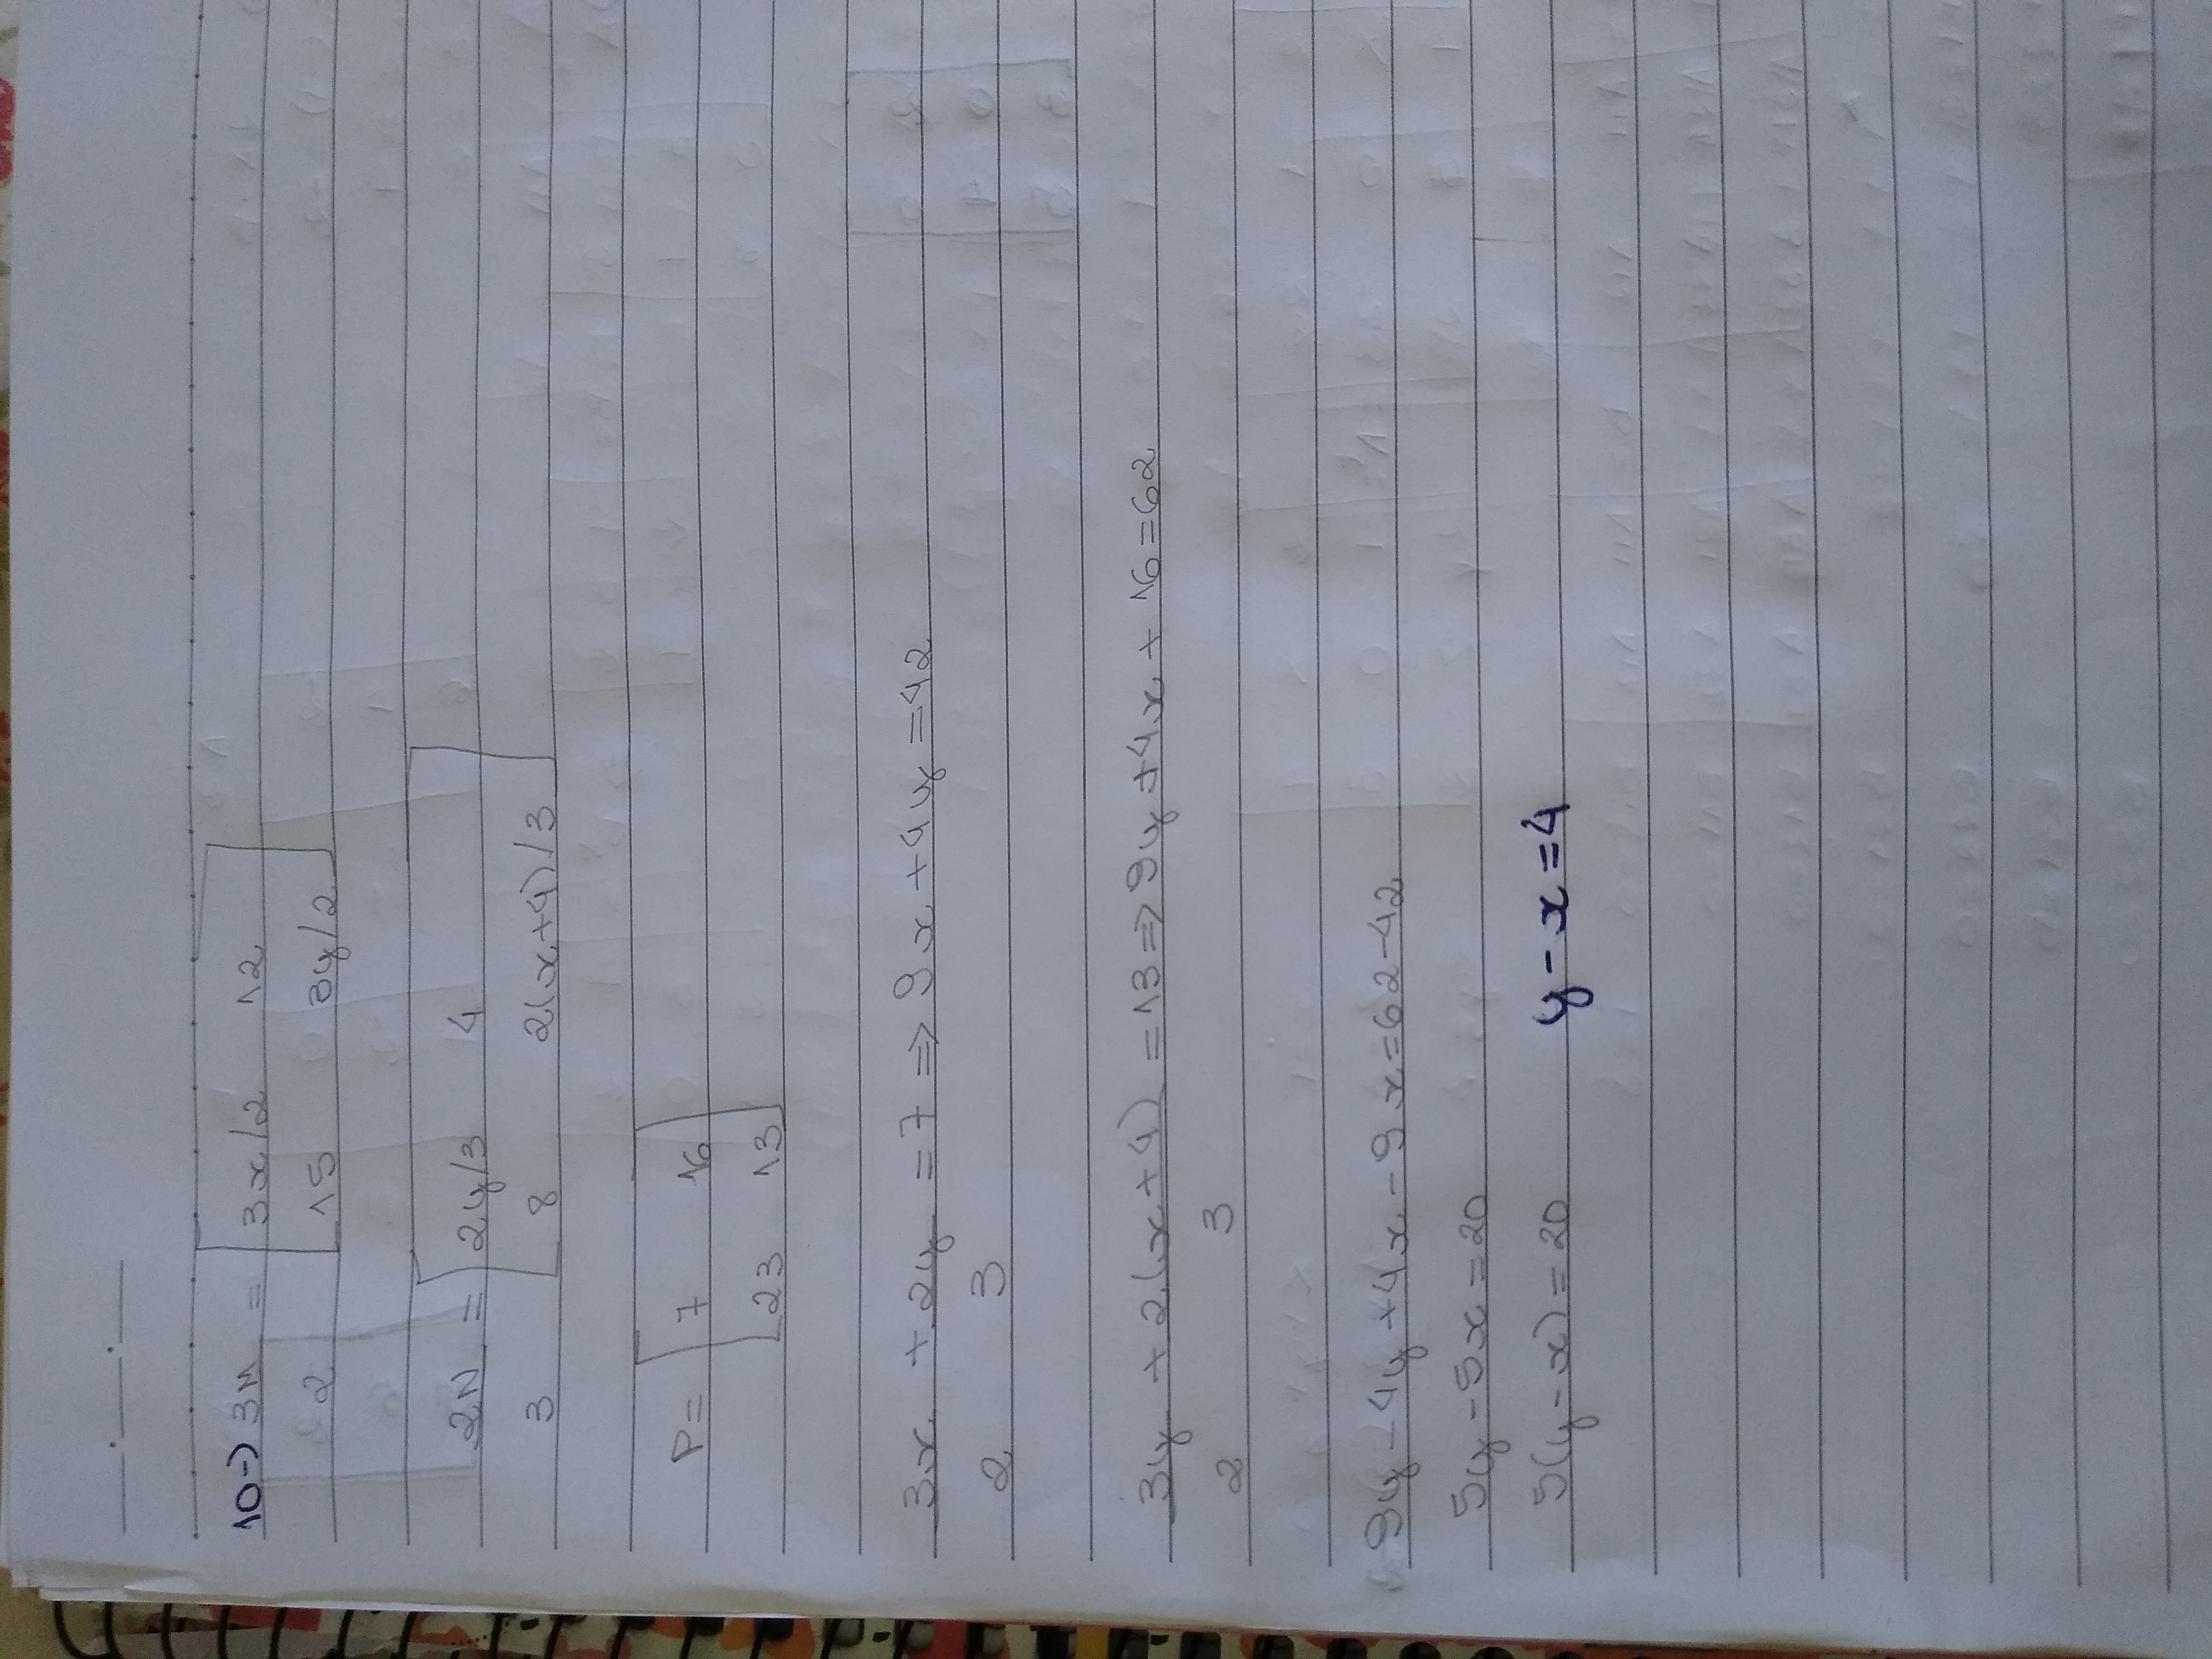 10-) 3M = 3x/2 12
2 15 3y/2
2N = 2y/3 4
3 8 2(x+4)/3
P= 7 16
23 13
3x + 2y = 7 => 9x + 4y = 42
2 3
3y + 2(x+4) = 13 => 9y + 4x + 16 = 62
2 3
9y - 4y + 4x - 9x = 62 - 42
5y - 5x = 20
5(y - x) = 20 y - x = 4